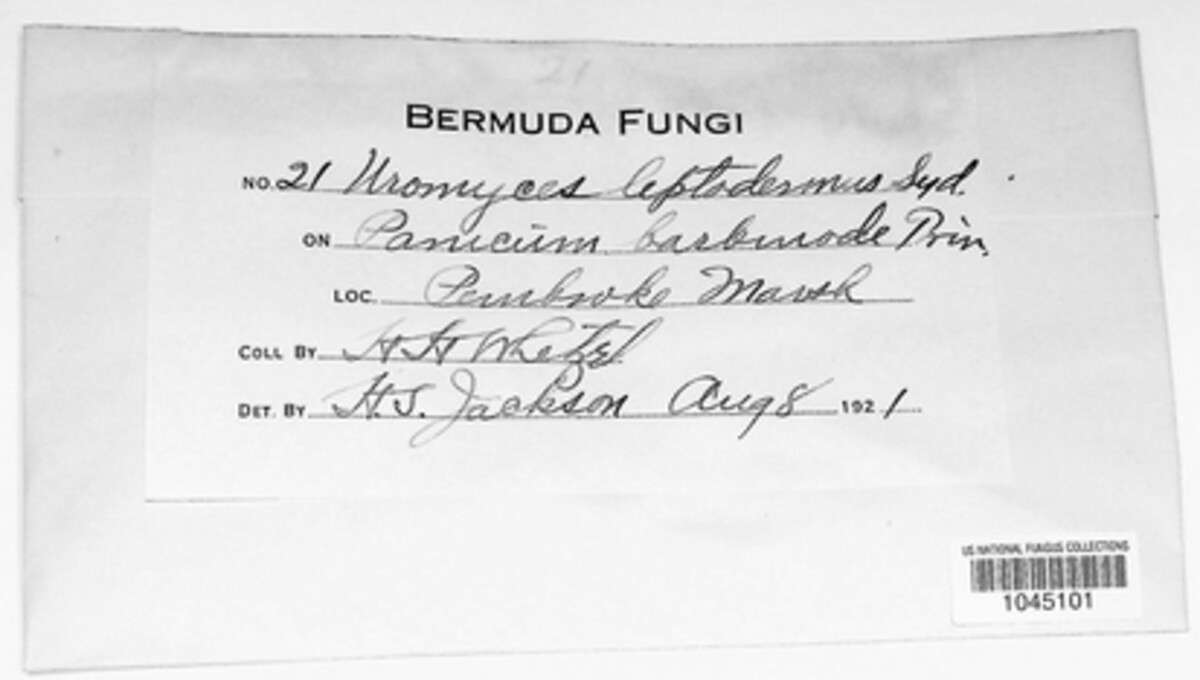 21
BERMUDA FUNGI
NO. 21 Uromyces leptodermus Syd.
ON Panicum barbinode Trin.
LOC. Pembroke Marsh
COLL BY H H Whetzel
DET. BY H.S. Jackson Aug 8 1921
US NATIONAL FUNGUS COLLECTIONS
1045101